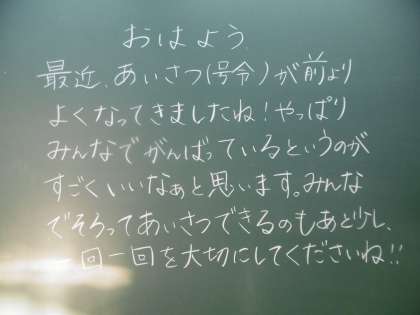 おはよう
最近、あいさつ(号令)が前より
よくなってきましたね!やっぱり
みんなでがんばっているというのが
すごくいいなぁと思います。みんな
でそろってあいさつできるのもあと少し、
一回一回を大切にしてくださいね!!